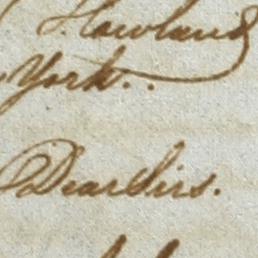 Howland
York.
Dear Sirs.